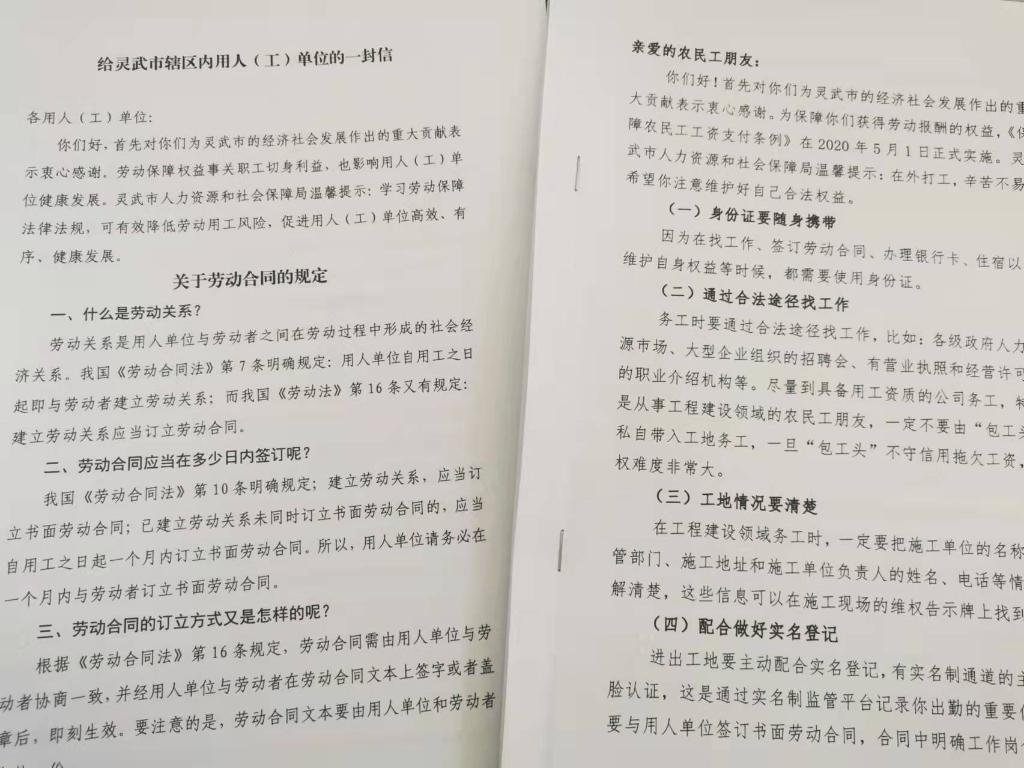 给灵武市辖区内用人（工）单位的一封信
各用人（工）单位:
你们好，首先对你们为灵武市的经济社会发展作出的重大贡献表
示衷心感谢。劳动保障权益事关职工切身利益，也影响用人（工）单
位健康发展。灵武市人力资源和社会保障局温馨提示：学习劳动保障
法律法规，可有效降低劳动用工风险，促进用人（工）单位高效、有
序、健康发展。
关于劳动合同的规定
一、什么是劳动关系？
劳动关系是用人单位与劳动者之间在劳动过程中形成的社会经
济关系。我国《劳动合同法》第7条明确规定：用人单位自用工之日
起即与劳动者建立劳动关系；而我国《劳动法》第16条又有规定：
建立劳动关系应当订立劳动合同。
二、劳动合同应当在多少日内签订呢？
我国《劳动合同法》第10条明确规定；建立劳动关系，应当订
立书面劳动合同；已建立劳动关系未同时订立书面劳动合同的，应当
自用工之日起一个月内订立书面劳动合同。所以，用人单位请务必在
一个月内与劳动者订立书面劳动合同。
三、劳动合同的订立方式又是怎样的呢？
根据《劳动合同法》第16条规定，劳动合同需由用人单位与劳
动者协商一致，并经用人单位与劳动者在劳动合同文本上签字或者盖
章后，即刻生效。要注意的是，劳动合同文本要由用人单位和劳动者
亲爱的农民工朋友：
你们好！首先对你们为灵武市的经济社会发展作出的重
大贡献表示衷心感谢。为保障你们获得劳动报酬的权益，《保
障农民工工资支付条例》在2020年5月1日正式实施。灵
武市人力资源和社会保障局温馨提示：在外打工，辛苦不易
希望你注意维护好自己合法权益。
（一）身份证要随身携带
因为在找工作、签订劳动合同、办理银行卡、住宿以
维护自身权益等时候，都需要使用身份证。
（二）通过合法途径找工作
务工时要通过合法途径找工作，比如：各级政府人力
源市场、大型企业组织的招聘会、有营业执照和经营许可
的职业介绍机构等。尽量到具备用工资质的公司务工，特
是从事工程建设领域的农民工朋友，一定不要由“包工头
私自带入工地务工，一旦“包工头”不守信用拖欠工资，
权难度非常大。
（三）工地情况要清楚
在工程建设领域务工时，一定要把施工单位的名称
管部门、施工地址和施工单位负责人的姓名、电话等情
解清楚，这些信息可以在施工现场的维权告示牌上找到
（四）配合做好实名登记
进出工地要主动配合实名登记，有实名制通道的主
脸认证，这是通过实名制监管平台记录你出勤的重要
要与用人单位签订书面劳动合同，合同中明确工作岗